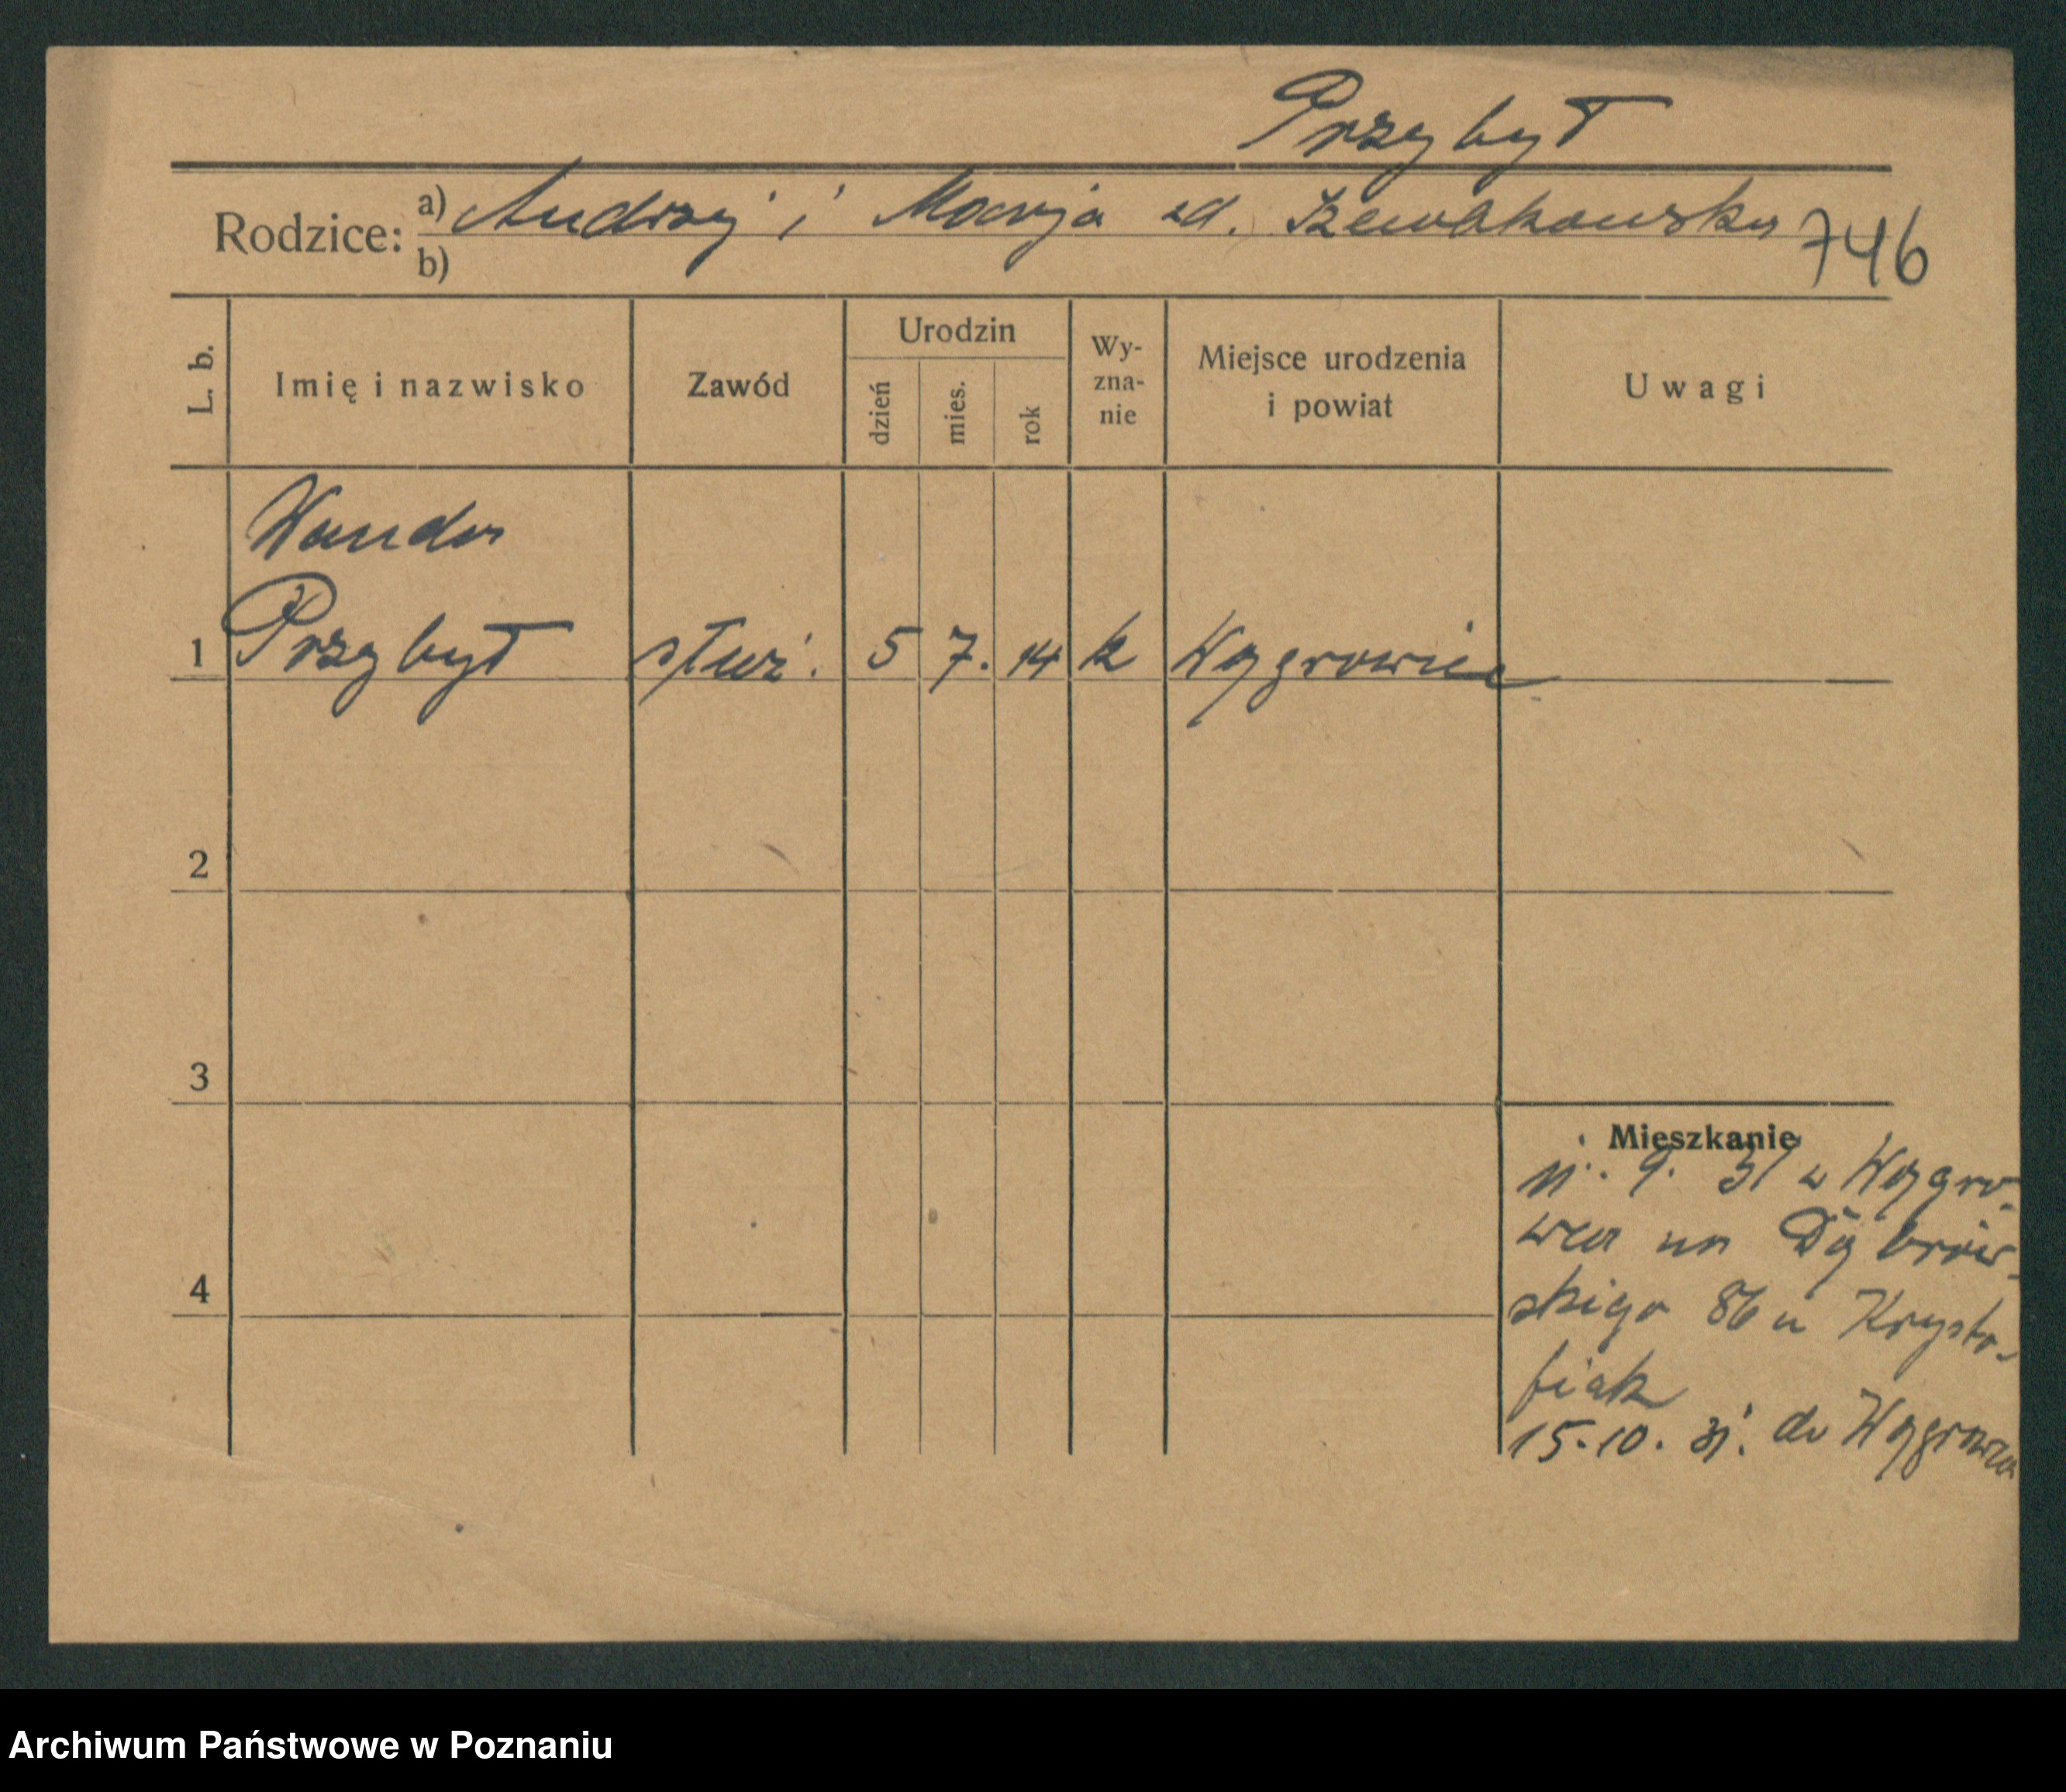 Przybył
Rodzice: a) Andrzej i Marja zd.
746
b)
L. b.
Imię i nazwisko
Zawód
Urodzin
dzień
mies.
rok
Wy-
zna-
nie
Miejsce urodzenia
i powiat
Uwagi
Wanda
1 Przybył służ. 5 7. 14 k Wągrowiec
2
3
4
Mieszkanie
9. 31 z Wągro-
wca na Dąbrow-
skiego 86 u Krysto-
fiak
15.10. 31. do Wągrowca
Archiwum Państwowe w Poznaniu